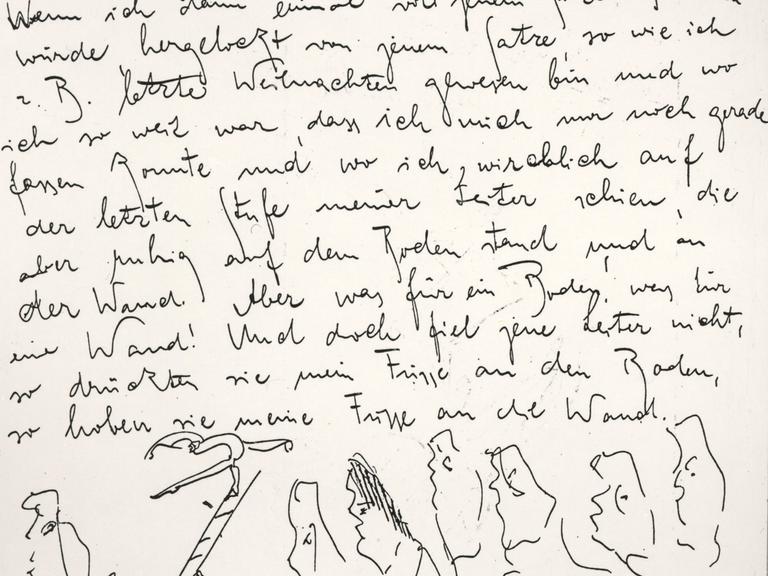 Wenn ich dann einmal vor jenem
würde, hergelockt von jenem Satze, so wie ich
z. B. letzte Weihnachten gewesen bin und wo
ich so weit war, dass ich mich nur noch gerade
fassen konnte und wo ich wircklich auf
der letzten Stufe meiner Leiter schien, die
aber ruhig auf dem Boden stand und an
der Wand. Aber was für ein Boden! was für
eine Wand! Und doch fiel jene Leiter nicht,
so drückten sie mein Füsse an den Boden,
so hoben sie meine Füsse an die Wand.